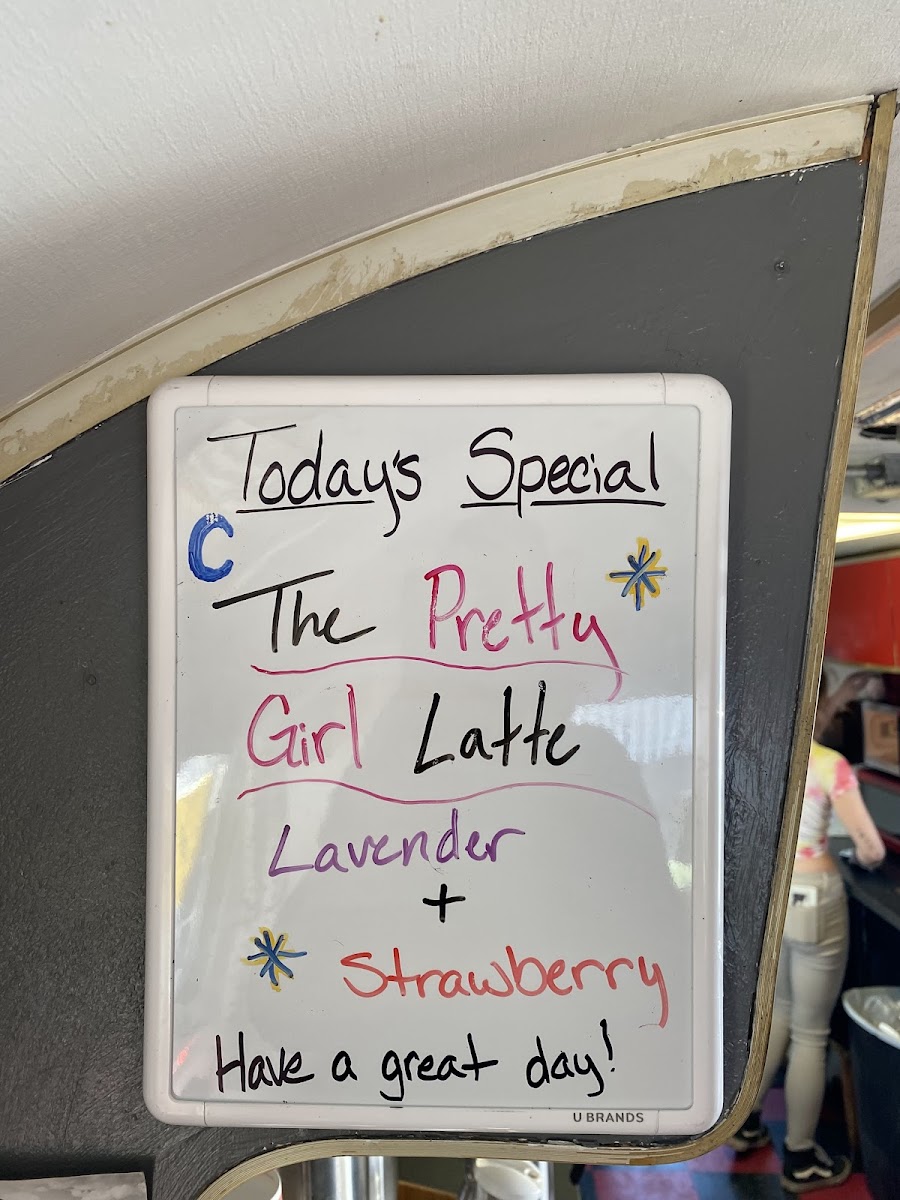 Today's Special
C
The Pretty
Girl Latte
Lavender
+
Strawberry
Have a great day!
U BRANDS